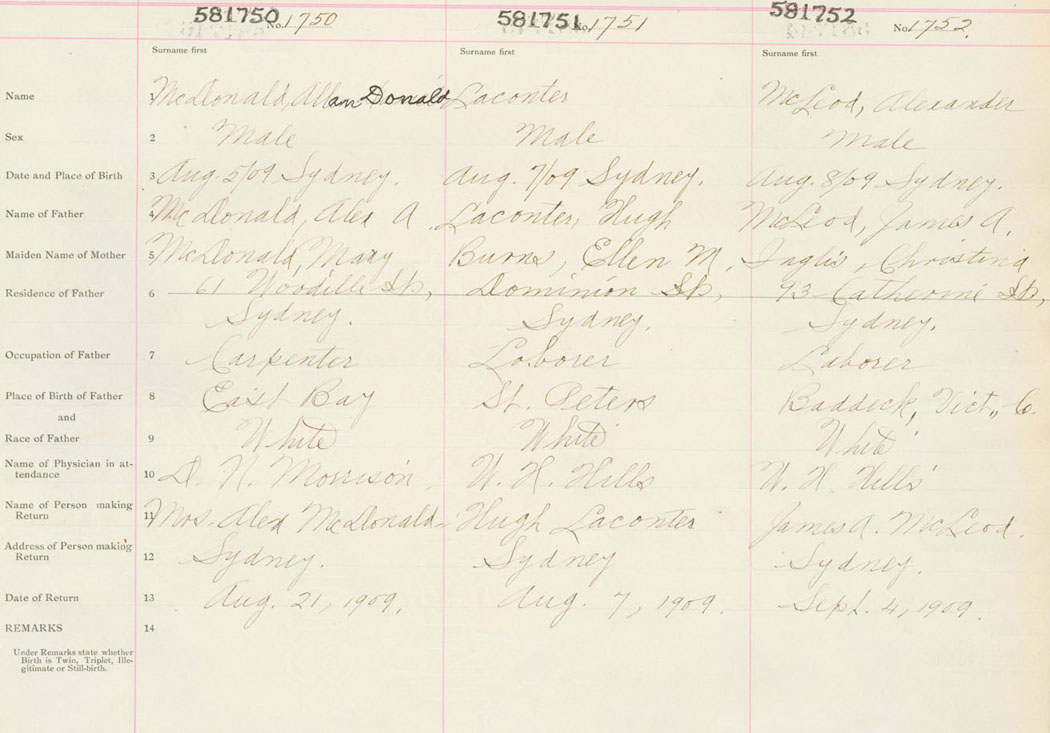 581750 No. 1750 581751 No. 1751 581752 No. 1752
Surname first Surname first Surname first
Name 1 McDonald, Allan Donald Laconter McLeod, Alexander
Sex 2 Male Male Male
Date and Place of Birth 3 Aug. 5/09 Sydney. Aug. 7/09 Sydney. Aug. 8/09 Sydney.
Name of Father 4 McDonald, Alex A. Laconter, Hugh McLeod, James A.
Maiden Name of Mother 5 McDonald, Mary Burns, Ellen M. Inglis, Christina
Residence of Father 6 61 Woodill St., Dominion St., 93 Catherine St.,
Sydney. Sydney. Sydney.
Occupation of Father 7 Carpenter Laborer Laborer
Place of Birth of Father 8 East Bay St. Peters Baddeck, Vict., C.
and
Race of Father 9 White White White
Name of Physician in at-
tendance 10 D. N. Morrison W. H. Hills W. H. Hills
Name of Person making
Return 11 Mrs. Alex McDonald Hugh Laconter James A. McLeod.
Address of Person making
Return 12 Sydney. Sydney Sydney.
Date of Return 13 Aug. 21, 1909. Aug. 7, 1909. Sept. 4, 1909.
REMARKS 14
Under Remarks state whether
Birth is Twin, Triplet, Ille-
gitimate or Still-birth.